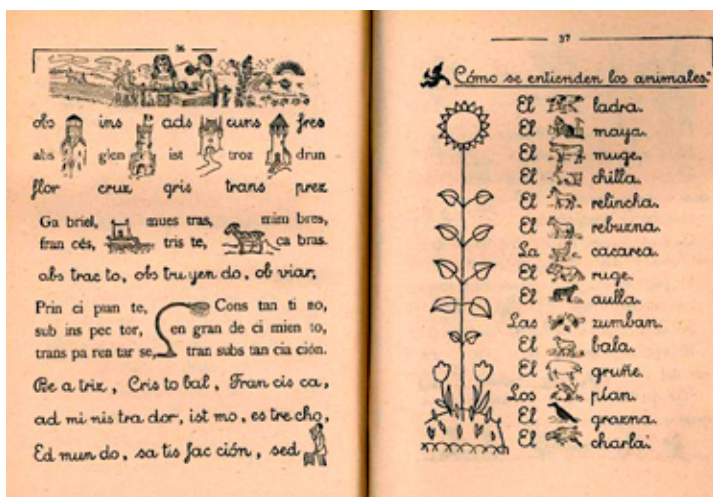 36
obs ins ads cuns fres
abs glen ist troz drun
flor cruz gris trans prez
Ga briel, mues tras, mim bres,
fran cés, tris te, ca bras.
obs trac to, obs tru yen do, ob viar,
Prin ci pian te, Cons tan ti no,
sub ins pec tor, en gran de ci mien to,
trans pa ren tar se, tran subs tan cia ción.
Be a triz, Cris to bal, Fran cis ca,
ad mi nis tra dor, ist mo, es tre cho,
Ed mun do, sa tis fac ción, sed
37
Cómo se entienden los animales.
El ladra.
El maya.
El muge.
El chilla.
El relincha.
El rebuzna.
La cacarea.
El ruge.
El aulla.
Las zumban.
El bala.
El gruñe.
Los pían.
El grazna.
El charla.